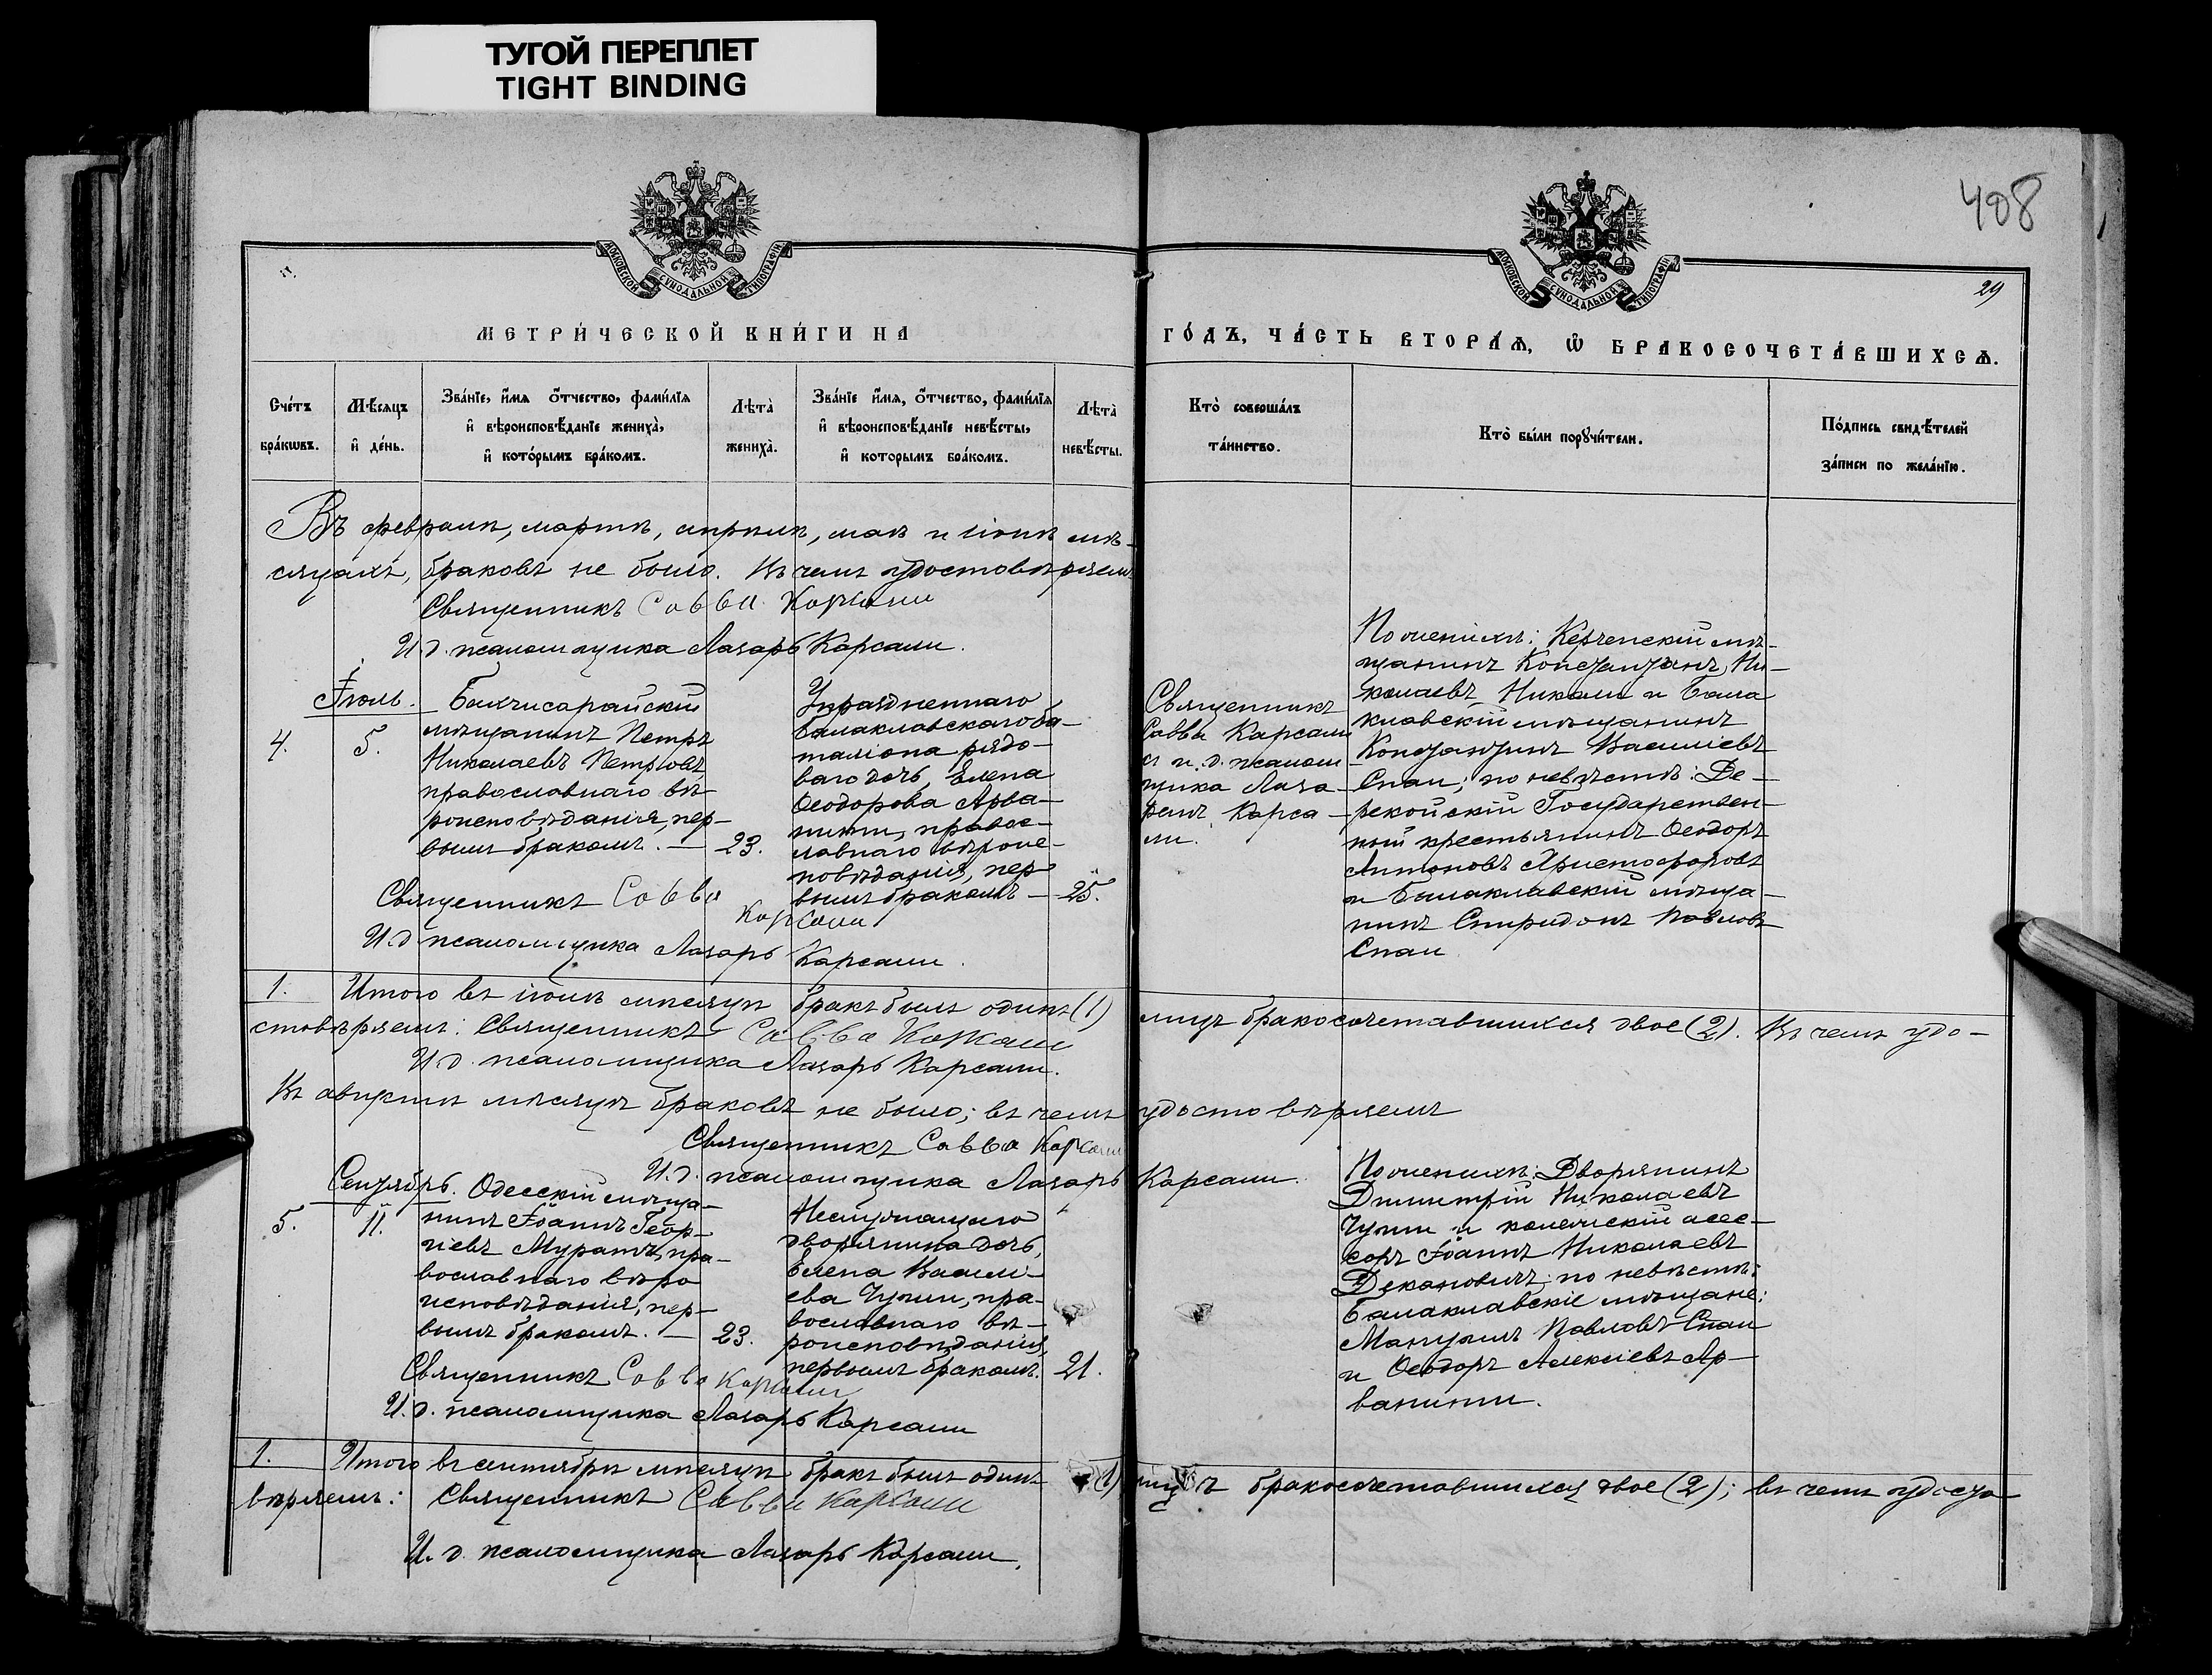 ТУГОЙ ПЕРЕПЛЕТ
TIGHT BINDING
408
29
МОСКОВСКОЙ СѴНОДАЛЬНОЙ ТИПОГРАФІИ
МОСКОВСКОЙ СѴНОДАЛЬНОЙ ТИПОГРАФІИ
МЕТРИ́ЧЕСКОЙ КНИ́ГИ НА
ГО́ДЪ, ЧА́СТЬ ВТОРА́Ѧ, Ѽ БРАКОСОЧЕТА́ВШИХСѦ.
Сче́тъ
бра́кѡвъ.
Мѣ́сяцъ
и де́нь.
Зва́нїе, и́мя ѻ́тчество, фами́лїя
и вѣроисповѣ́данїе жениха̀,
и кото́рымъ бра́комъ.
Лѣта̀
жениха̀.
Зва́нїе и́мя, ѻ́тчество, фами́лїя
и вѣроисповѣ́данїе невѣ́сты,
и которымъ бра́комъ.
Лѣта̀
невѣ́сты.
Кто̀ соверша́лъ
та́инство.
Кто̀ бы́ли порꙋчи́тели.
По́дпись свидѣ́телей
за́писи по жела́нїю.
Въ февралѣ, мартѣ, апрѣлѣ, маѣ и іюнѣ мѣ-
сяцахъ, браковъ не было. Въ чемъ удостовѣряемъ
Священникъ Савва Карсали
И.д. псаломщика Лазарь Карсали.
Іюль.
4.
5.
Бахчисарайскій
мѣщанинъ Петръ
Николаевъ Петровъ,
православнаго вѣ-
роисповѣданія, пер-
вымъ бракомъ. —
23.
Упраздненнаго
Балаклавскаго ба-
таліона рядо-
ваго дочь, Елена
Ѳеодорова Арва-
нити, правос-
лавнаго вѣроис-
повѣданія, пер-
вымъ бракомъ —
25.
Священникъ
Савва Карсали
съ и.д. псалом
щика Лаза-
ремъ Карса-
ли.
По женихѣ: Керченскій мѣ-
щанинъ Константинъ Ни-
колаевъ Никали и Бала
клавскій мѣщанинъ
Константинъ Василіевъ
Спаи; по невѣстѣ: Де-
рекойскій Государствен-
ный крестьянинъ Ѳеодоръ
Антоновъ Христофоровъ
и Балаклавскій мѣща-
нинъ Спиридонъ Павловъ
Спаи
Священникъ Савва
Карсали
И.д. псаломщика Лазарь Карсали.
1. Итого въ іюлѣ мѣсяцѣ бракъ былъ одинъ (1) лицъ бракосочетавшихся двое (2). Въ чемъ удо-
стовѣряемъ: Священникъ Савва Карсали
И.д. псаломщика Лазарь Карсали.
Въ августѣ мѣсяцѣ браковъ не было; въ чемъ удостовѣряемъ
Священникъ Савва Карсали
И.д. псаломщика Лазарь Карсали.
Сентябрь.
5.
11.
Одесскій мѣща-
нинъ Іоаннъ Геор-
гіевъ Муратъ, пра-
вославнаго вѣро
исповѣданія, пер-
вымъ бракомъ. —
23.
Неслужащаго
дворянина дочь,
Елена Васили-
ева Чупи, пра-
вославнаго вѣ-
роисповѣданія,
первымъ бракомъ.
21.
По женихѣ: Дворянинъ
Димитрій Николаевъ
Чупи и коллежскій асес-
соръ Іоаннъ Николаевъ
Декановичъ; по невѣстѣ:
Балаклавскіе мѣщане:
Мануилъ Павловъ Спаи
и Ѳеодоръ Алексіевъ Ар-
ванити.
Священникъ Савва Карсали
И.д. псаломщика Лазарь Карсали
1. Итого въ сентябрѣ мѣсяцѣ бракъ былъ одинъ (1) лицъ бракосочетавшихся двое (2); въ чемъ удосто-
вѣряемъ: Священникъ Савва Карсали
И.д. псаломщика Лазарь Карсали.